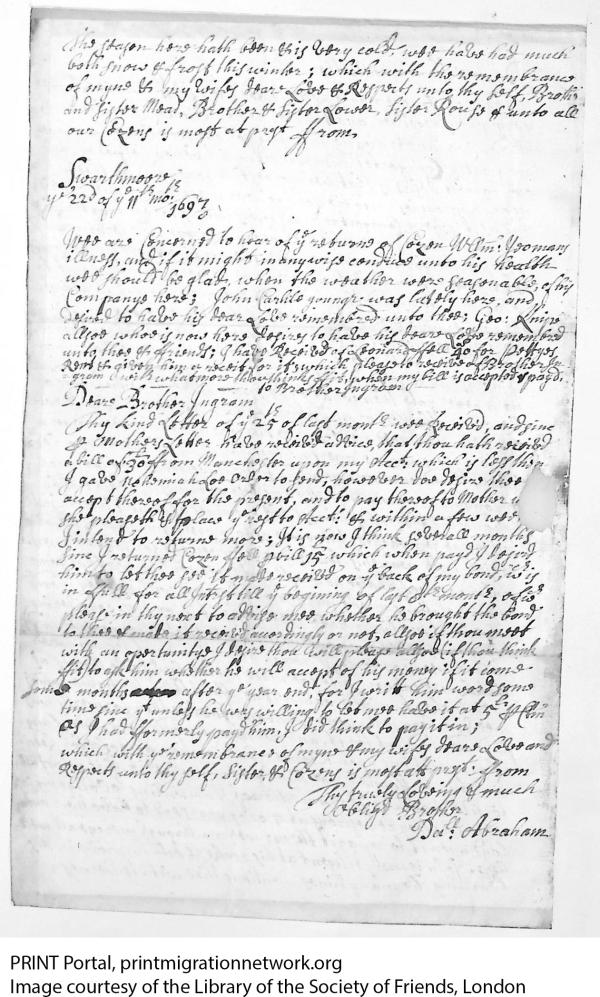 The season here hath been & is very cold, wee have had much
both snow & frost this winter; which with the remembrance
of myne & my wifes deare Love & Respects unto thy self, Brothr
and Sister Mead, Brother & Sister Lower, Sister Rouse & unto all
our Cozens is most at prst ffrom,
Swarthmoore
ye 22d of ye 11th mo: 1697
Wee are Concerned to hear of ye returne of Cozen Willm: Yeomans
illness, and if it might in anywise conduce unto his health
wee should be glad, when the weather were seasonable, of his
Companye here; John Carlile youngr was lately here, and
desired to have his dear Love remembred unto thee; Geo: Knipe
allsoe whoe is now here desires to have his deare Love remembred
unto thee & ffriends; I have Received of Leonard ffell for Pettyes
Rent & given him a receit for it, which please to receive of Brother In-
gram & what more thou thinks fit, when my bill is accepted & payd.
To Brother Ingram
Deare Brother Ingram
Thy kind Letter of ye 25 of last month wee Received, and sinc
Mothers Letter have received advice, that thou hath received
a bill of from Manchester upon my Acct: which is less then
I gave order to send, however doe desire thee
accept thereof for the present, and to pay thereof to Mother
she pleaseth & place ye rest to Acct: & within a few wee
I intend to returne more; It is now I think severall months
sinc I returned Cozen ffell 15 which when payd I desired
him to let thee see it made received on ye back of my bond, wch is
in full for all till ye begining of last month, of wch
please in thy next to advise mee whether he brought the bond
to thee & made it received accordingly or not, allsoe if thou meet
with an opertunitye I desire thou will please allsoe if thou think
ffit to ask him whether he will accept of his money if it come
some months after ye year end, for I writt him word some
time sinc yt unless he were willing to let mee have it at 5 Centm
As I had fformerly payd him, I did think to pay it in;
which with ye remembrance of myne & my wifes deare Love and
Respects unto thy self, Sister, & Cozens is most att prst: ffrom
Thy truely Loveing & much
Obliged Brother
Danl: Abraham
PRINT Portal, printmigrationnetwork.org
Image courtesy of the Library of the Society of Friends, London